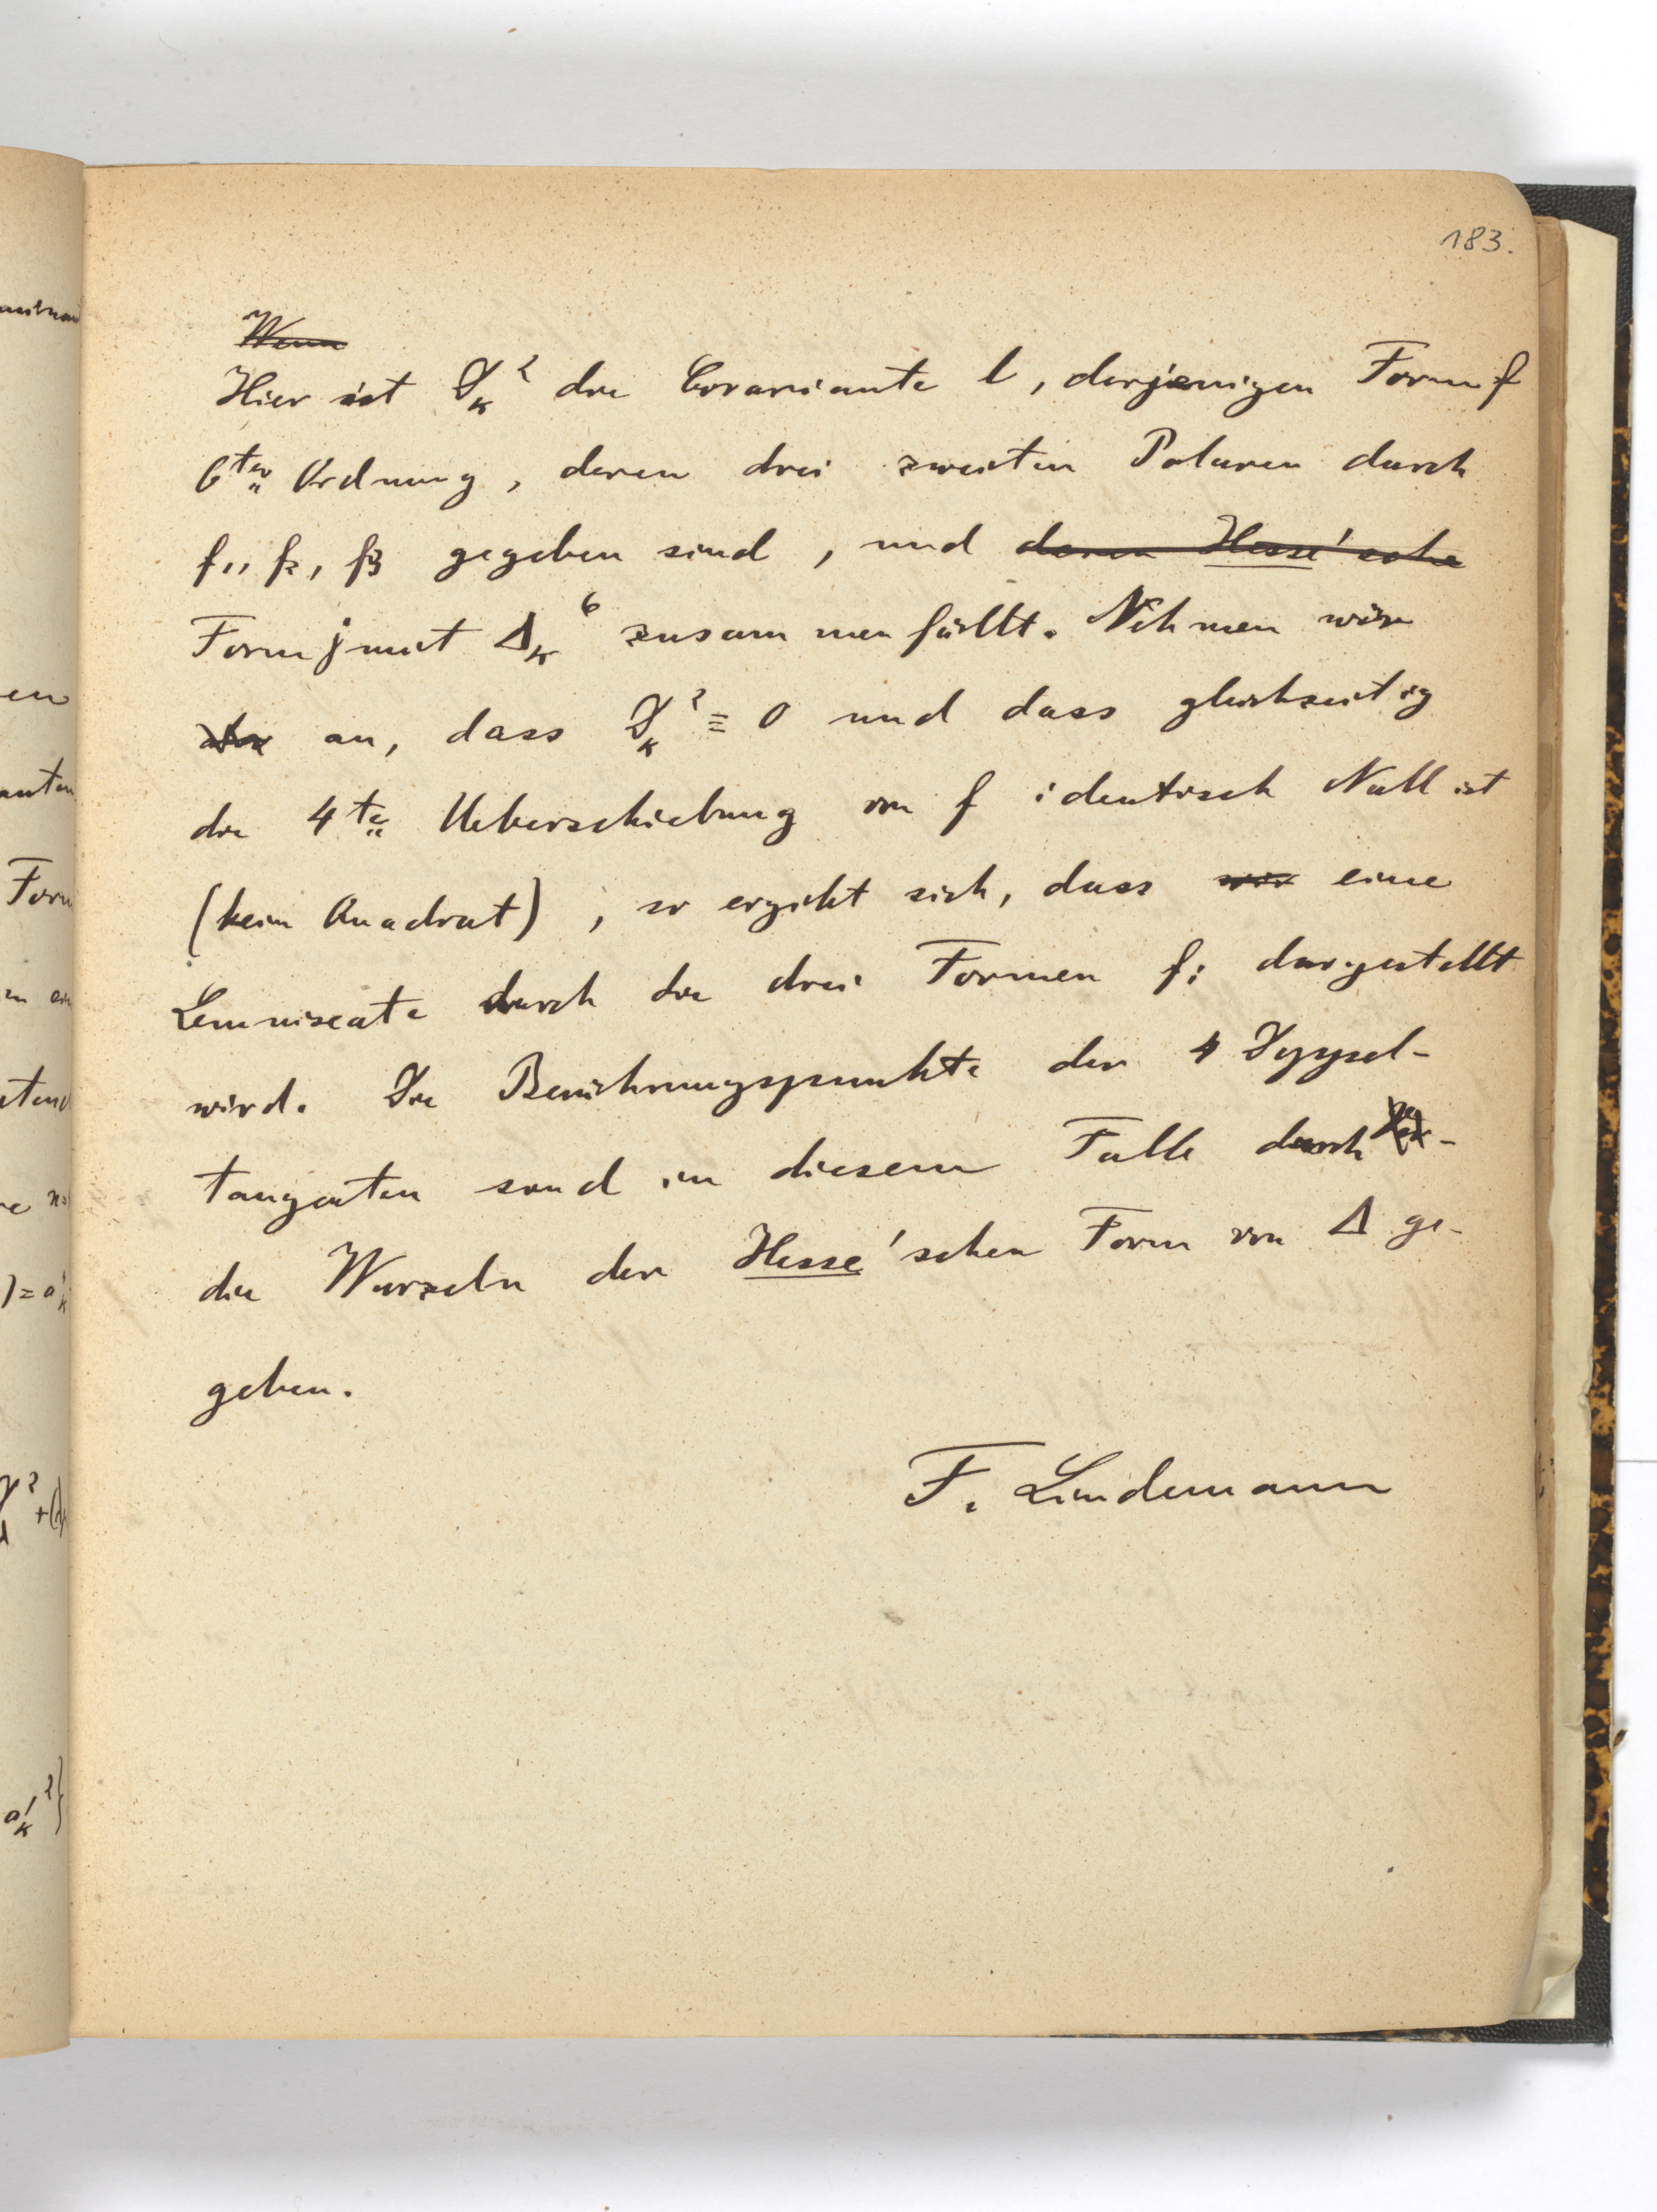 183.
Wenn
Hier ist ϑ_κ² die Covariante l, derjenigen Form f
6ter Ordnung, deren drei zweiten Polaren durch
f₁, f₂, f₃ gegeben sind, und deren Hesse'sche
Form j mit Δ_κ⁶ zusammenfällt. Nehmen wir
an, dass ϑ_κ² ≡ 0 und dass gleichzeitig
die 4te Ueberschiebung von f identisch Null ist
(kein Quadrat), so ergibt sich, dass wir eine
Lemniscate durch die drei Formen fi dargestellt
wird. Die Berührungspunkte der 4 Doppel-
tangenten sind in diesem Falle durch
die Wurzeln der Hesse'schen Form von Δ ge-
geben.
F. Lindemann
en
Form